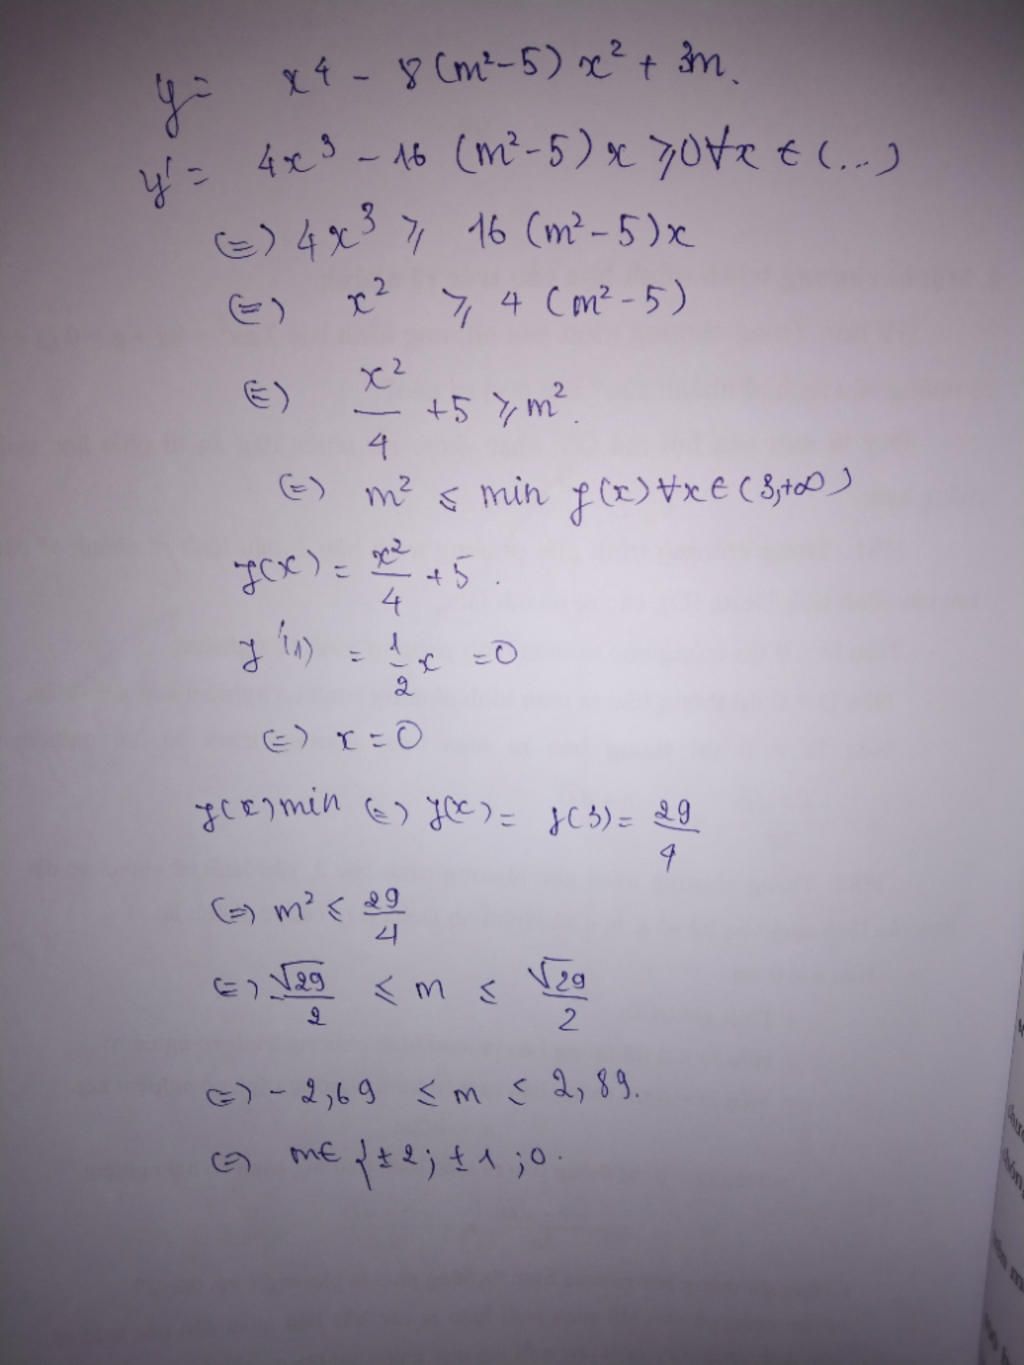 y = x⁴ - 8(m²-5)x² + 3m.
y' = 4x³ - 16(m²-5)x ⩾0∀x ∈ (...)
(=) 4x³ ⩾ 16(m²-5)x
(=) x² ⩾ 4(m²-5)
(=) x²/4 +5 ⩾ m².
(=) m² ⩽ min g(x) ∀x∈(3,+∞)
g(x) = x²/4 +5.
g'(1) = 1/2 x =0
(=) x=0
g(x)min (=) g(x) = g(3) = 29/4
(=) m² ⩽ 29/4
(=) √29/2 ⩽ m ⩽ √29/2
(=) -2,69 ⩽ m ⩽ 2,89.
(=) m∈{±2; ±1;0.